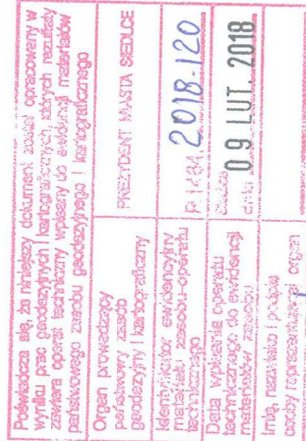 Poświadcza się, że niniejszy dokument został opracowany w
wyniku prac geodezyjnych i kartograficznych, których rezultaty
zawiera operat techniczny wpisany do ewidencji materiałów
państwowego zasobu geodezyjnego i kartograficznego
Organ prowadzący
państwowy zasób
geodezyjny i kartograficzny
PREZYDENT MIASTA SIEDLCE
Identyfikator ewidencyjny
materiału zasobu-operatu
technicznego
P.1464.2018-120
Data wpisania operatu
technicznego do ewidencji
materiałów zasobu
09 LUT. 2018
Imię, nazwisko i podpis
osoby reprezentującej organ